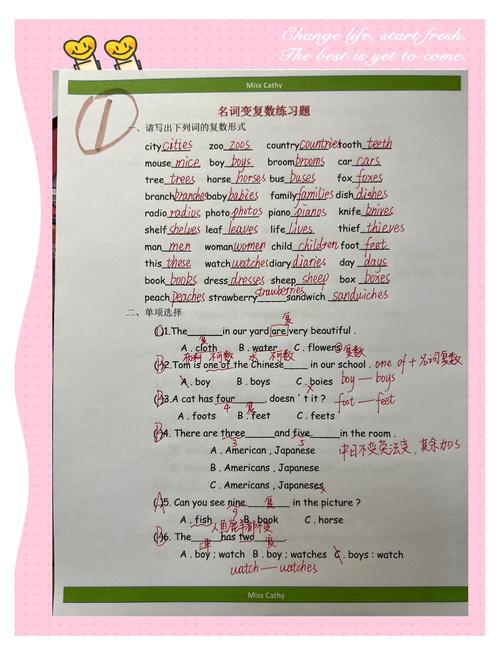 Change life, start fresh.
The best is yet to come.
Miss Cathy
1
名词变复数练习题
一、请写出下列词的复数形式
city cities zoo zoos country countries tooth teeth
mouse mice boy boys broom brooms car cars
tree trees horse horses bus buses fox foxes
branch branches baby babies family families dish dishes
radio radios photo photos piano pianos knife knives
shelf shelves leaf leaves life lives thief thieves
man men woman women child children foot feet
this these watch watches diary diaries day days
book books dress dresses sheep sheep box boxes
peach peaches strawberry strawberries sandwich sandwiches
二、单项选择
(C)1.The______in our yard are very beautiful . 复
A . cloth B . water C . flowers 复数
布料 不可数 水 不可数
(B)2.Tom is one of the Chinese_____ in our school . one of + 名词复数
A . boy B . boys C . boies boy — boys
(B)3.A cat has four_____, doesn't it ? foot — feet
A . foots B . feet C . feets
4
(B)4. There are three_____and five_____in the room .
3 5
A . American , Japanese 中日不变英法变，其余加s
B . Americans , Japanese
C . Americans , Japaneses
(A)5. Can you see nine 复 in the picture ?
9
A . fish B . book C . horse
(B)6. The____has two 复 .
A . boy ; watch B . boy ; watches C . boys : watch
watch — watches
Miss Cathy